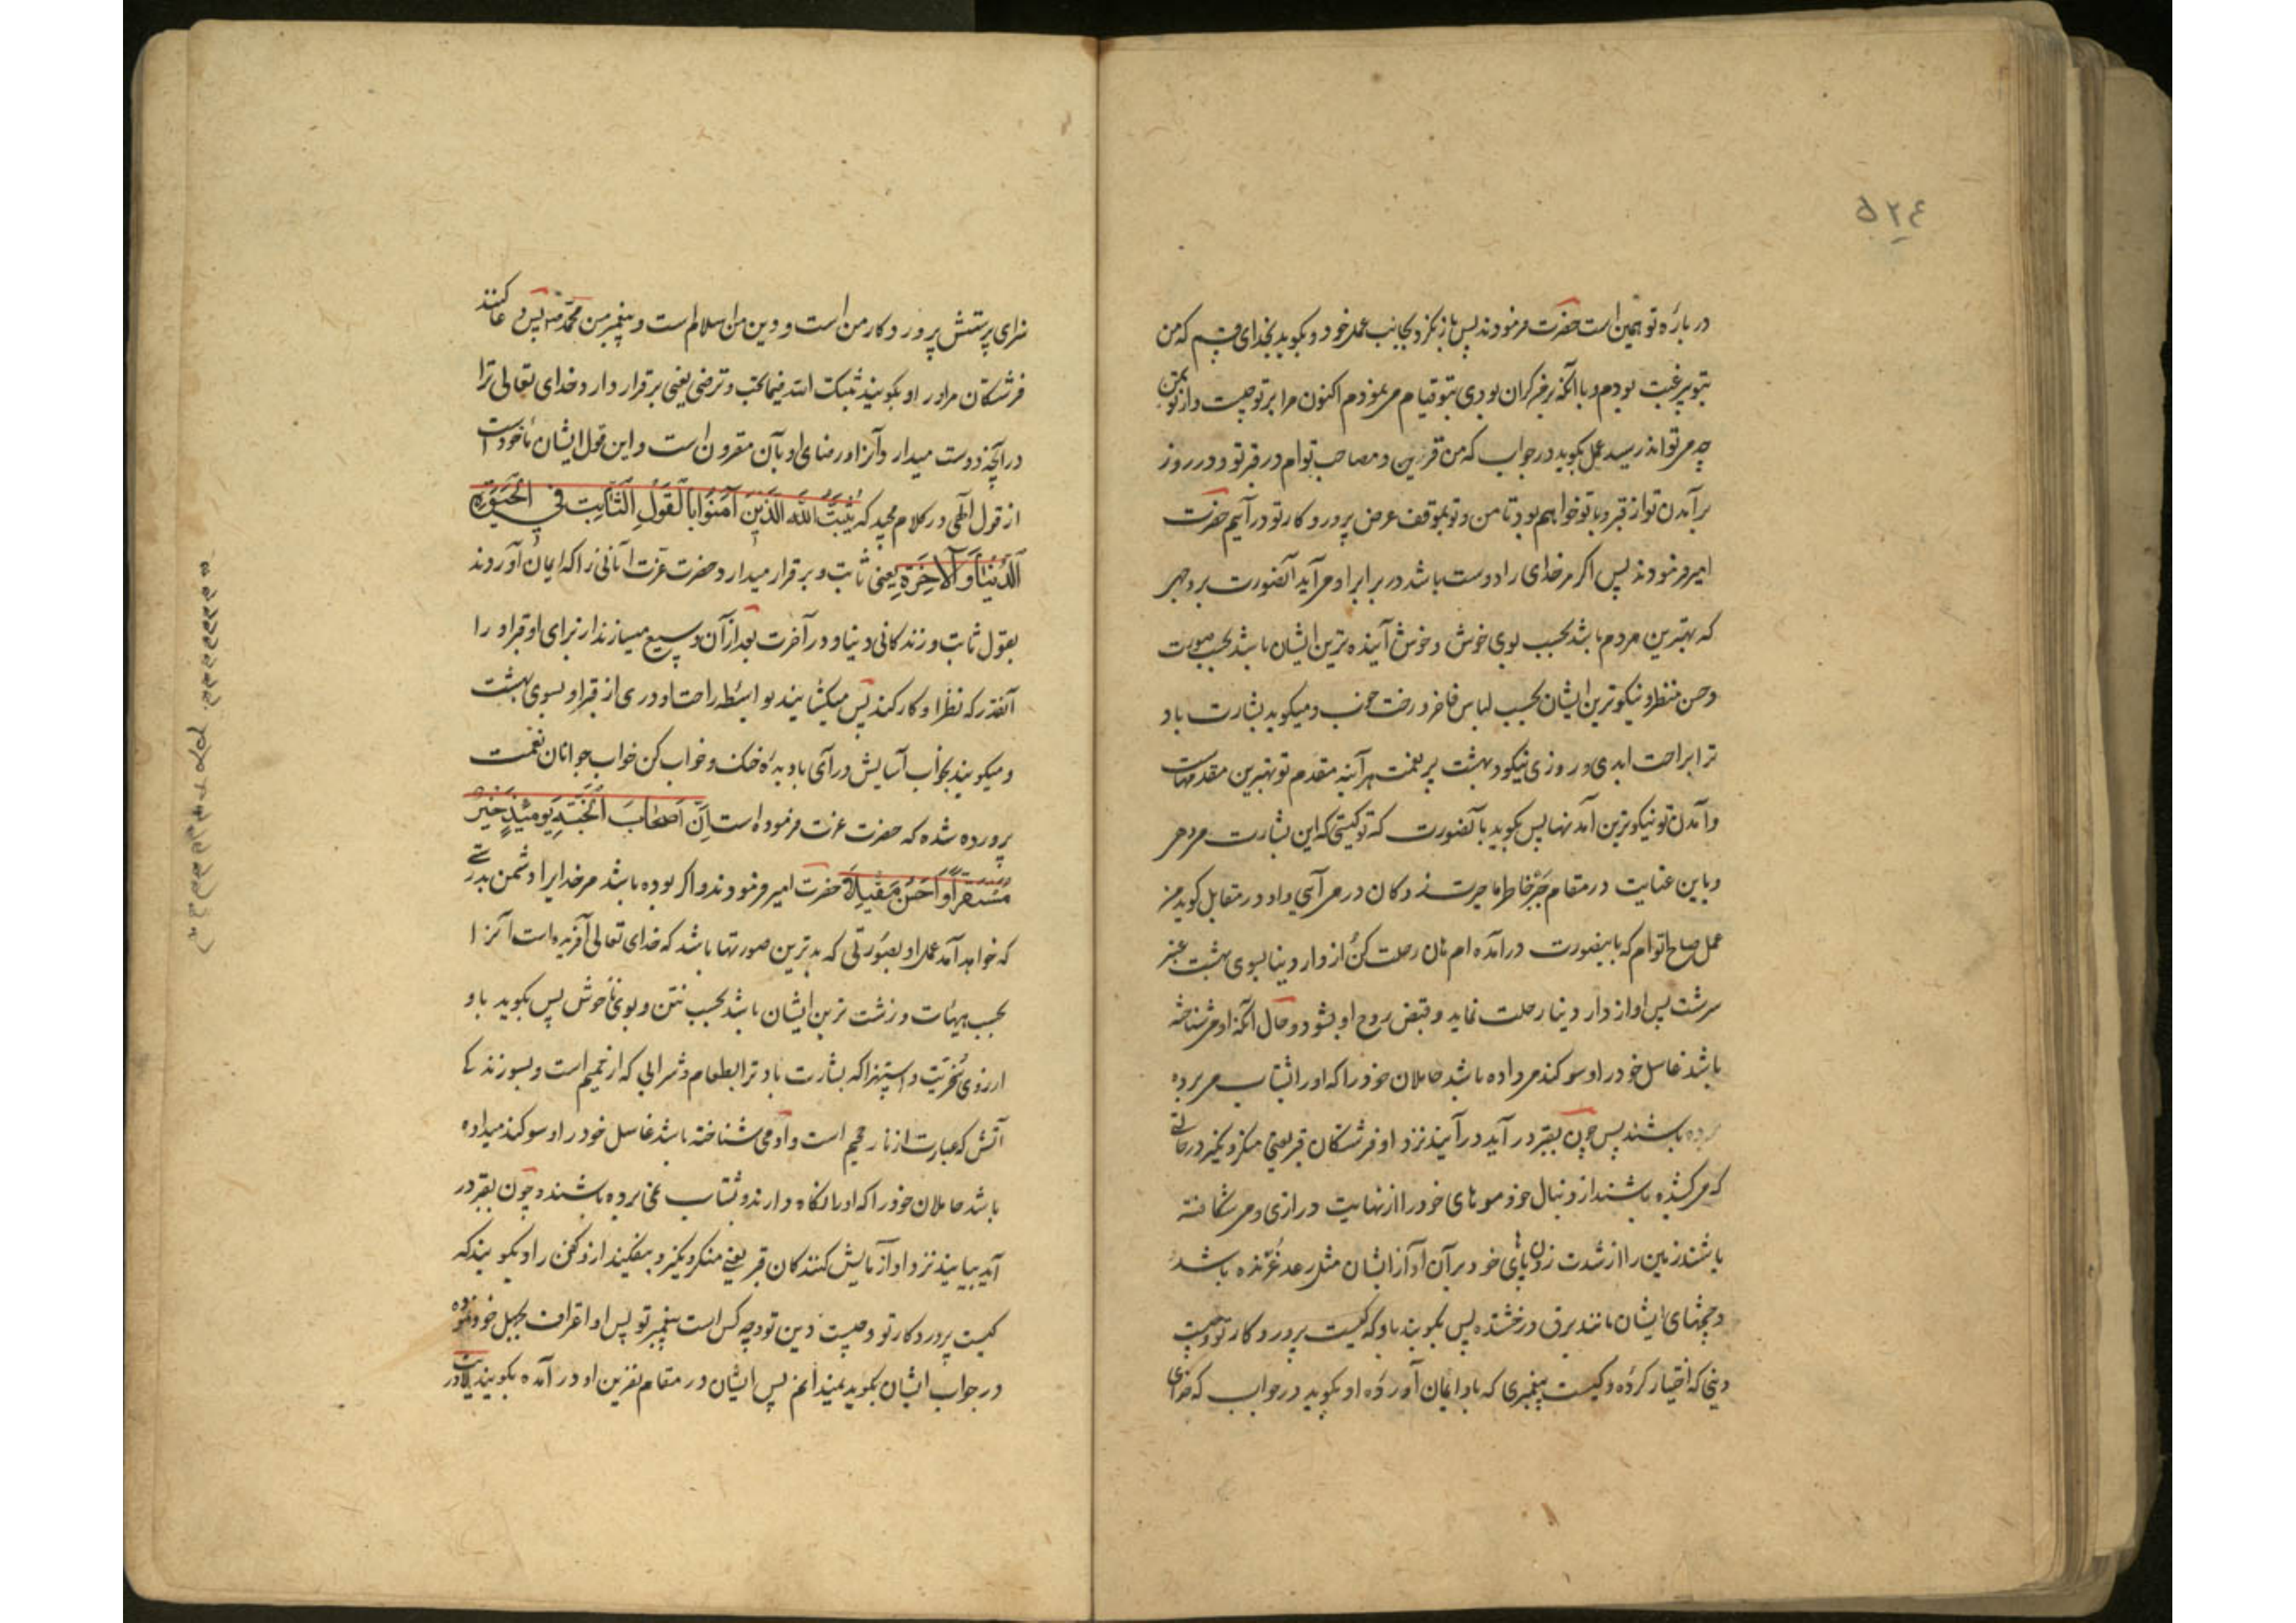 ٥٢٤
درباره تو همین است حضرت فرمودند پس باز نکرد بجانب عمل خود و بکوید بخدای قسم که من
بتو بیرغبت بودم و با آنکه بر من کران بودی بتو قیام می نمودم اکنون مرا بر تو چیست و از تو بمن
چه می تواند رسید عمل بکوید در جواب که من قرین و مصاحب توام در قبر تو و در روز
برآمدن تو از قبر و با تو خواهم بود تا من و تو بموقف عرض پروردکار تو در آییم حضرت
امیر فرمودند پس اکر مر خدای را دوست باشد در برابر او می آید آنصورت بر وجهی
که بهترین مردم باشد بحسب بوی خوش و خوش آینده ترین ایشان باشد بحسب صورت
و حسن منظر و نیکوترین ایشان بحسب لباس فاخر و رخت خوب و میکوید بشارت باد
ترا براحت ابدی و روزی نیکو و بهشت پر نعمت هرآینه مقدم تو بهترین مقدمهاست
و آمدن تو نیکوترین آمدنها پس بکوید بآنصورت که تو کیستی که این بشارت می دهی
و باین عنایت در مقام جبر خاطر ما در می آیی و او در مقابل کوید من
عمل صالح توام که باینصورت درآمده ام هان رحلت کن از دار دنیا بسوی بهشت عنبر
سرشت پس او از دار دنیا رحلت نماید و قبض روح او بشود و حال آنکه او می شناخته
باشد غاسل خود را و سوکند می داده باشد حاملان خود را که او را بشتاب می برده
برده باشند پس چون بقبر در آید در آیند نزد او فرشتکان قبر یعنی منکر و نکیر در حالتی
که می کشیده باشند از دنبال خود موهای خود را از نهایت درازی و می شکافته
باشند زمین را از شدت زدن پاهای خود بر آن آواز ایشان مثل رعد غرنده باشد
و چشمهای ایشان مانند برق درخشنده پس بکویند باو که کیست پروردکار تو و چیست
دینی که اختیار کرده و کیست پیغمبری که باو ایمان آورده او بکوید در جواب که خدای
سزای پرستش پروردکار من است و دین من اسلام است و پیغمبر من محمد است پس دعا کنند
فرشتکان مر او را و بکویند ثبتک الله فیما تحب و ترضی یعنی برقرار دارد خدای تعالی ترا
در آنچه دوست میدارد و آنرا و رضای او بآن مقرون است و این قول ایشان مأخوذ است
از قول آلهی در کلام مجید که یُثَبِّتُ اللهُ الَّذینَ آمَنُوا بِالْقَوْلِ الثَّابِتِ فی الْحَیوةِ
الدُّنْیا وَ الآخِرَةِ یعنی ثابت و برقرار میدارد حضرت عزت آنانی را که ایمان آوردند
بقول ثابت در زندکانی دنیا و در آخرت بعد از آن وسیع میسازند از برای او قبر او را
آنقدر که نظر او کار کند پس میکشایند بواسطه راحت او دری از قبر او بسوی بهشت
و میکویند بخواب آسایش درآی با دیده خنک و خواب کن خواب جوانان نعمت
پرورده شده که حضرت عزت فرموده است اِنَّ اَصْحابَ الْجَنَّةِ یَوْمَئِذٍ خَیْرٌ
مُسْتَقَرًّا وَ اَحْسَنُ مَقِیلًا حضرت امیر فرمودند و اکر بوده باشد مر خدایرا دشمن بدرستی
که خواهد آمد عمل او بصورتی که بدترین صورتها باشد که خدای تعالی آفریده است آنرا
بحسب هیئات و زشت ترین ایشان باشد بحسب نتن و بوی ناخوش پس بکوید باو
از روی سخریت و استهزا که بشارت باد ترا بطعام و شرابی که از حمیم است و بسوزندکی
آتش که عبارت از نار جحیم است و او می شناخته باشد غاسل خود را و سوکند میداده
باشد حاملان خود را که او را نکاه دارند و بشتاب نمی برده باشند و چون بقبر در
آید بیایند نزد او آزمایش کنندکان قبر یعنی منکر و نکیر و بیفکنند از و کفن را و بکویند که
کیست پروردکار تو و چیست دین تو و چه کس است پیغمبر تو پس او اعتراف بجهل خود نموده
در جواب ایشان بکوید نمیدانم پس ایشان در مقام نفرین او در آمده بکویند لادریت